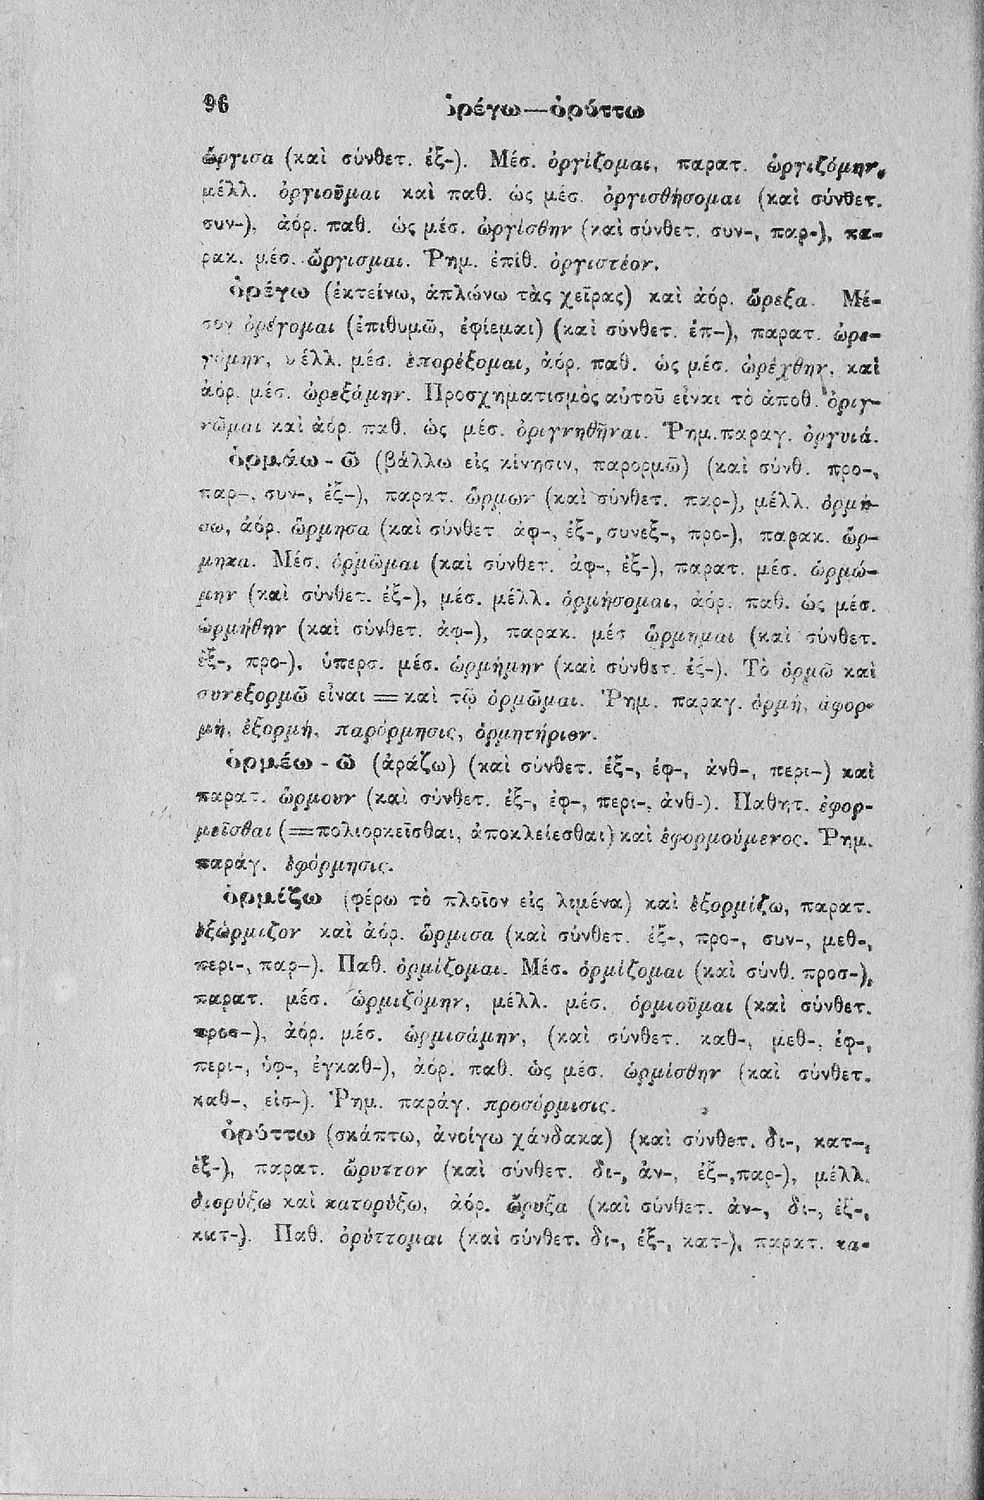 96 ὀρέγω—ὀρύττω
ὤργισα (καὶ σύνθετ. ἐξ-). Μέσ. ὀργίζομαι, παρατ. ὠργιζόμην,
μέλλ. ὀργιοῦμαι καὶ παθ. ὡς μέσ. ὀργισθήσομαι (καὶ σύνθετ.
συν-), ἀόρ. παθ. ὡς μέσ. ὠργίσθην (καὶ σύνθετ. συν-, παρ-), πα-
ρακ. μέσ. ὤργισμαι. Ῥημ. ἐπίθ. ὀργιστέον.
ὀρέγω (ἐκτείνω, ἁπλώνω τὰς χεῖρας) καὶ ἀόρ. ὤρεξα. Μέ-
σον ὀρέγομαι (ἐπιθυμῶ, ἐφίεμαι) (καὶ σύνθετ. ἐπ-), παρατ. ὠρε-
γόμην, μέλλ. μέσ. ἐπορέξομαι, ἀόρ. παθ. ὡς μέσ. ὠρέχθην, καὶ
ἀόρ. μέσ. ὠρεξάμην. Προσχηματισμὸς αὐτοῦ εἶναι τὸ ἀποθ. ὀριγ-
νῶμαι καὶ ἀόρ. παθ. ὡς μέσ. ὀριγνηθῆναι. Ῥημ. παραγ. ὀργυιά.
ὁρμάω-ῶ (βάλλω εἰς κίνησιν, παρορμῶ) (καὶ σύνθ. προ-,
παρ-, συν-, ἐξ-), παρατ. ὥρμων (καὶ σύνθετ. παρ-), μέλλ. ὁρμή-
σω, ἀόρ. ὥρμησα (καὶ σύνθετ. ἀφ-, ἐξ-, συνεξ-, προ-), παρακ. ὥρ-
μηκα. Μέσ. ὁρμῶμαι (καὶ σύνθετ. ἀφ-, ἐξ-), παρατ. μέσ. ὡρμώ-
μην (καὶ σύνθετ. ἐξ-), μέσ. μέλλ. ὁρμήσομαι, ἀόρ. παθ. ὡς μέσ.
ὡρμήθην (καὶ σύνθετ. ἀφ-), παρακ. μέσ. ὥρμημαι (καὶ σύνθετ.
ἐξ-, προ-), ὑπερσ. μέσ. ὡρμήμην (καὶ σύνθετ. ἐξ-). Τὸ ὁρμῶ καὶ
συνεξορμῶ εἶναι = καὶ τῷ ὁρμῶμαι. Ῥημ. παραγ. ὁρμή, ἀφορ-
μή, ἐξορμή, παρόρμησις, ὁρμητήριον.
ὁρμέω-ῶ (ἀράζω) (καὶ σύνθετ. ἐξ-, ἐφ-, ἀνθ-, περι-) καὶ
παρατ. ὥρμουν (καὶ σύνθετ. ἐξ-, ἐφ-, περι-, ἀνθ-). Παθητ. ἐφορ-
μεῖσθαι (=πολιορκεῖσθαι, ἀποκλείεσθαι) καὶ ἐφορμούμενος. Ῥημ.
παράγ. ἐφόρμησις.
ὁρμίζω (φέρω τὸ πλοῖον εἰς λιμένα) καὶ ἐξορμίζω, παρατ.
ἐξώρμιζον καὶ ἀόρ. ὥρμισα (καὶ σύνθετ. ἐξ-, προ-, συν-, μεθ-,
περι-, παρ-). Παθ. ὁρμίζομαι. Μέσ. ὁρμίζομαι (καὶ σύνθ. προσ-),
παρατ. μέσ. ὡρμιζόμην, μέλλ. μέσ. ὁρμιοῦμαι (καὶ σύνθετ.
προσ-), ἀόρ. μέσ. ὡρμισάμην, (καὶ σύνθετ. καθ-, μεθ-, ἐφ-,
περι-, ὑφ-, ἐγκαθ-), ἀόρ. παθ. ὡς μέσ. ὡρμίσθην (καὶ σύνθετ.
καθ-, εἰσ-). Ῥημ. παράγ. προσόρμισις.
ὀρύττω (σκάπτω, ἀνοίγω χάνδακα) (καὶ σύνθετ. δι-, κατ-,
ἐξ-), παρατ. ὤρυττον (καὶ σύνθετ. δι-, ἀν-, ἐξ-, παρ-), μέλλ.
διορύξω καὶ κατορύξω, ἀόρ. ὤρυξα (καὶ σύνθετ. ἀν-, δι-, ἐξ-,
κατ-). Παθ. ὀρύττομαι (καὶ σύνθετ. δι-, ἐξ-, κατ-), παρατ. κα-